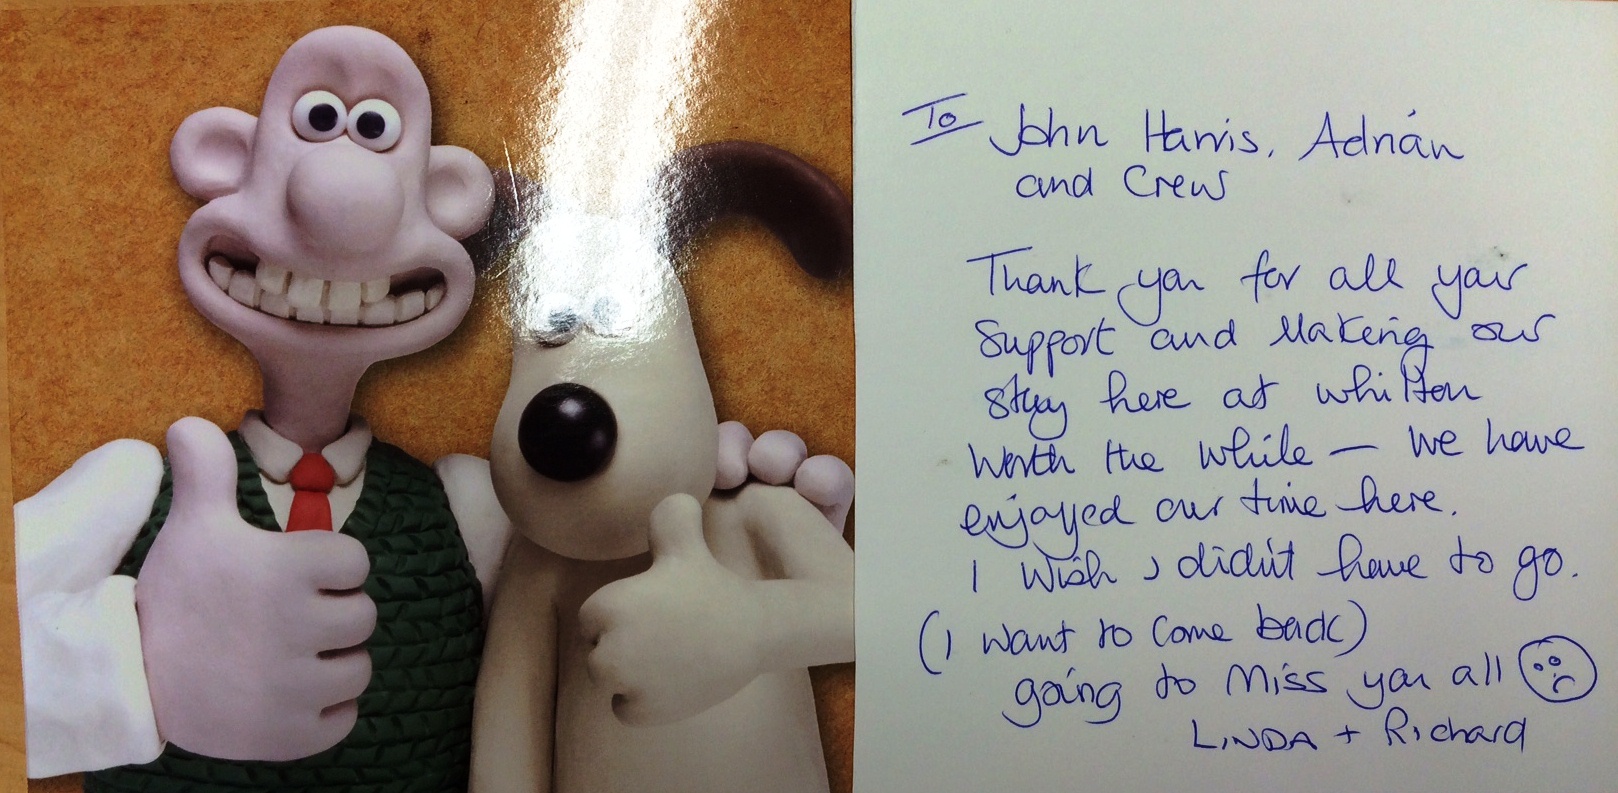 To John Harris, Adrián
and Crew
Thank you for all your
support and Making our
stay here at whilton
Worth the while – We have
enjoyed our time here.
I wish I didn't have to go.
(I want to come back)
going to Miss you all
LINDA + Richard